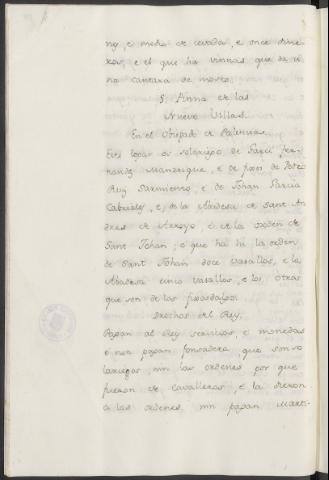 ney, e medio de cevada, e once dine-
ros, e el que ha vinnas que dé u-
na cantara de mosto.
S. Anna de las
Nueve Villas.
En el Obispado de Palencia.
Este logar es solariego de Garci Fer-
nandez Manrrique, e de fijos de Pero
Ruy Sarmiento, e de Johan Garcia
e, de la Abadesa de Sant An-
dres de Arroyo, e de la orden de
Sant Johan, e que ha hi la orden
de Sant Johan doce vasallos, e la
Abadesa cinco vasallos, e los otros
que son de los fijosdalgo.
Derechos del Rey.
Pagan al Rey servicios, e monedas
e non pagan fonsadera, que son so-
lariegos, nin los ordenes por que
fueron de cavalleros, e la dieron
a las ordenes, nin pagan marti-